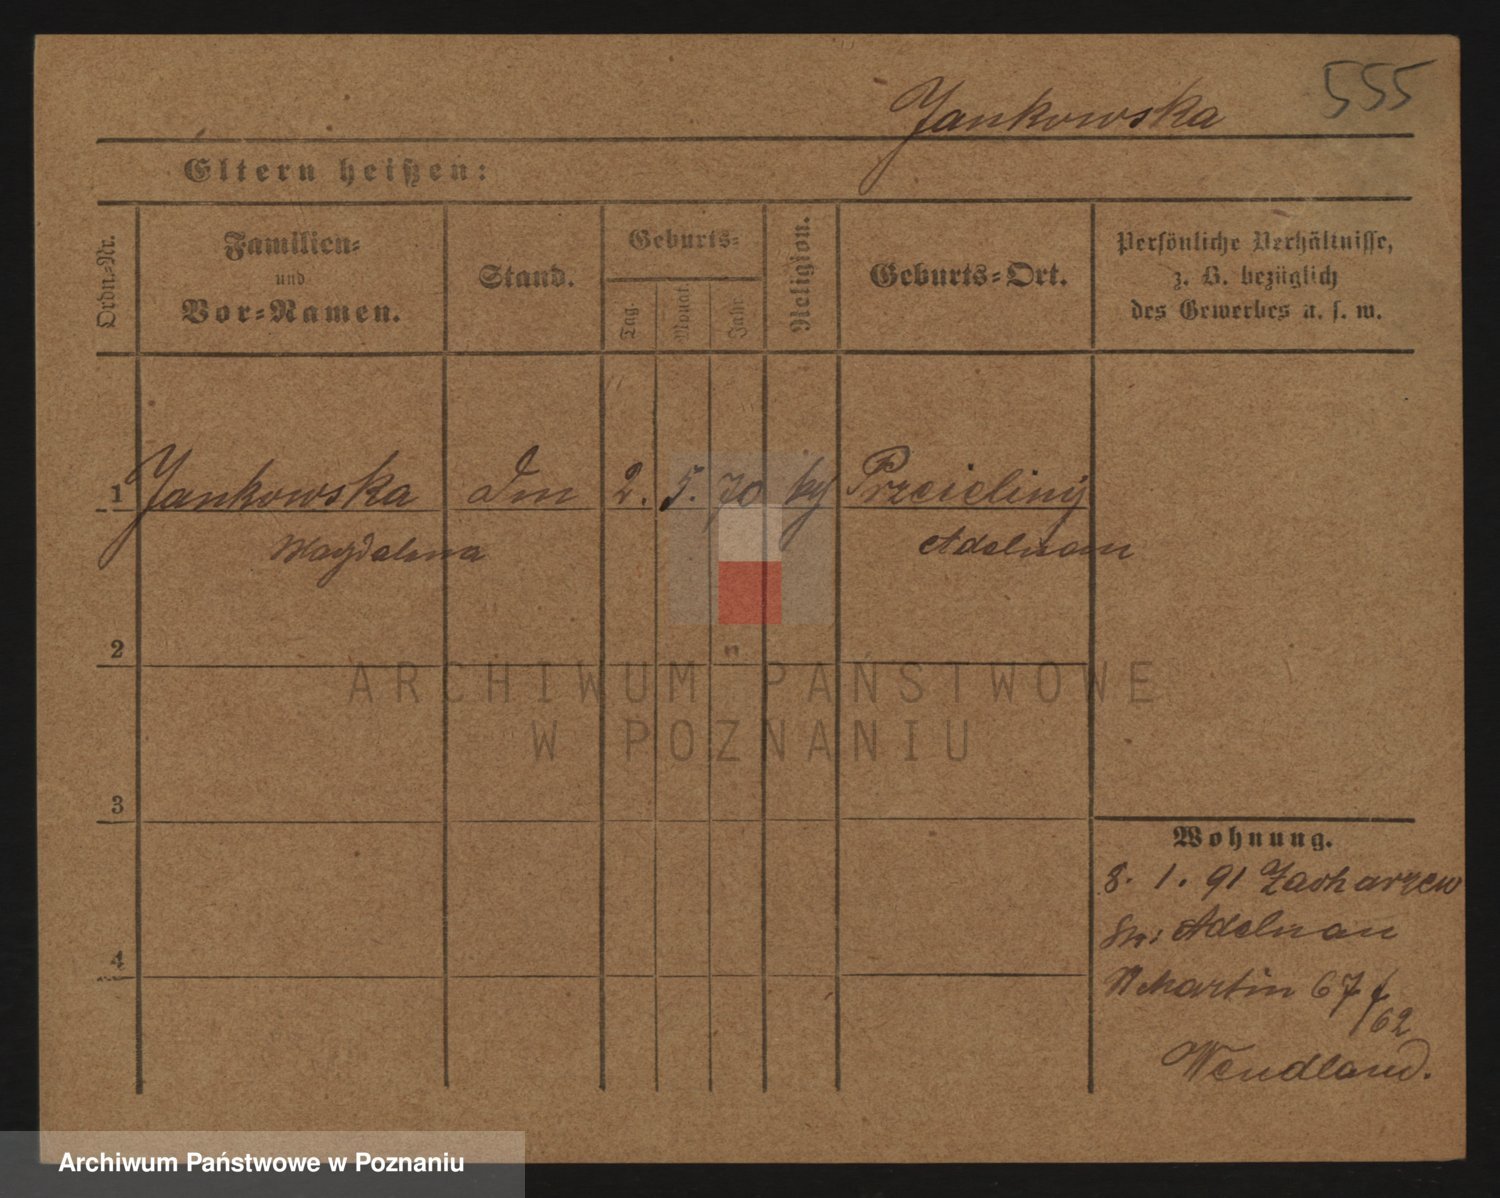 Jankowska 555
Eltern heißen:
Ordn.-Nr.
Familien-
und
Vor-Namen.
Stand.
Geburts-
Tag. Monat. Jahr.
Religion.
Geburts-Ort.
Persönliche Verhältnisse,
z. B. bezüglich
des Gewerbes u. s. w.
1 Jankowska 2. 5. 70
Magdalena Adelnau
2
3
4
Wohnung.
8. 1. 91 Zacharzew
Adelnau
Martin 67
62
Wendland.
ARCHIWUM PAŃSTWOWE
W POZNANIU
Archiwum Państwowe w Poznaniu